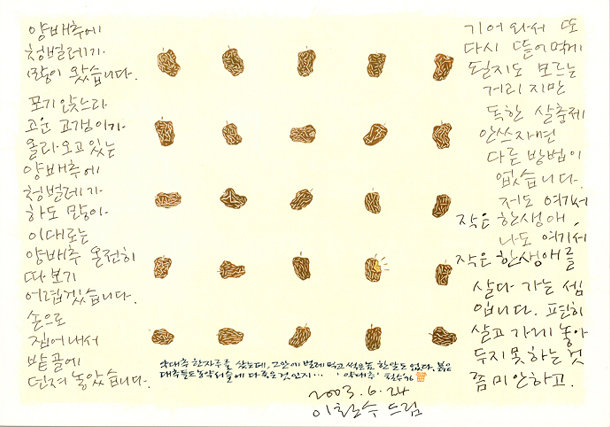 양배추에
청벌레가
많이 왔습니다.
포기 앉느라
고운 고갱이가
올라오고 있는
양배추에
청벌레가
하도 많아.
이대로는
양배추 온전히
따 보기
어렵겠습니다.
손으로
집어내서
밭골에
던져 놓았습니다.
기어 와서 또
다시 뜯어먹게
될지도 모르는
거리지만
독한 살충제
안쓰자면
다른 방법이
없습니다.
저도 여기서
작은 한생애,
나도 여기서
작은 한생애를
살다 가는 셈
입니다. 편히
살고 가게 놓아
두지 못하는 것
좀 미안하고.
약대추 한자루를 샀는데, 그안에 벌레먹고 썩은놈, 한알도 없다. 붉은
대추들도 농약의 술에 다 죽은 것인지... '약대추' 철수
2003. 6. 24
이철수 드림